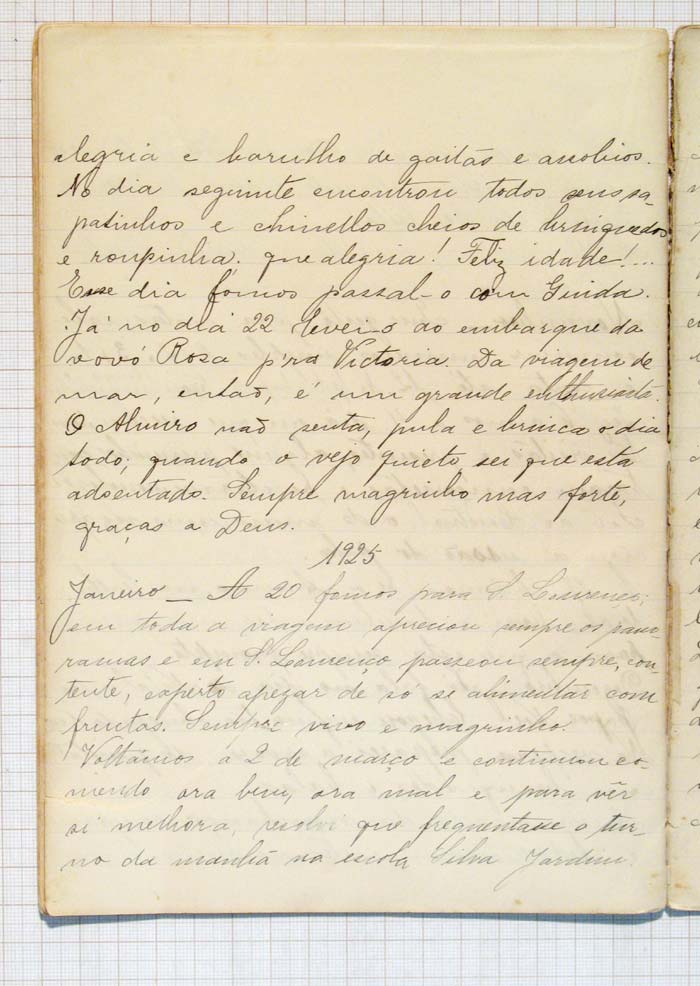 alegria e barulho de gaitas e assobios.
No dia seguinte encontrou todos seus sa-
patinhos e chinellos cheios de brinquedos
e roupinha. que alegria! Feliz idade!...
Esse dia fomos passal-o com Guida.
Já no dia 22 levei-o ao embarque da
vovó Rosa p'ra Victoria. Da viagem de
mar, então, é um grande enthusiasta.
O Almiro não senta, pula e brinca o dia
todo; quando o vejo quieto, sei que está
adoentado. Sempre magrinho mas forte,
graças a Deus.
1925
Janeiro _ A 20 fomos para S. Lourenço;
em toda a viagem apreciou sempre os pano-
ramas e em S. Lourenço passeou sempre, con-
tente, esperto apezar de só se alimentar com
fructas. Sempre vivo e magrinho.
Voltámos a 2 de março e continuou co-
mendo ora bem, ora mal e para vêr
si melhora, resolvi que frequentasse o tur-
no da manhã na escola Silva Jardim.